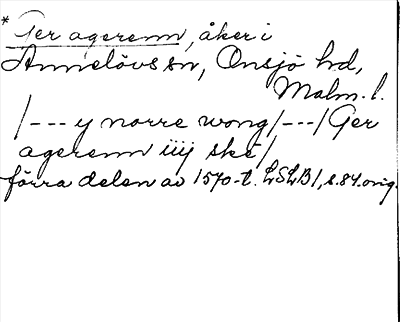 * Ger agerenn, åker i
Annelövs sn, Onsjö hd,
Malm. l.
/--- y norre wong/---/Ger
agerenn iiij ske/
förra delen av 1570-t. LSLB1, s. 84. orig.